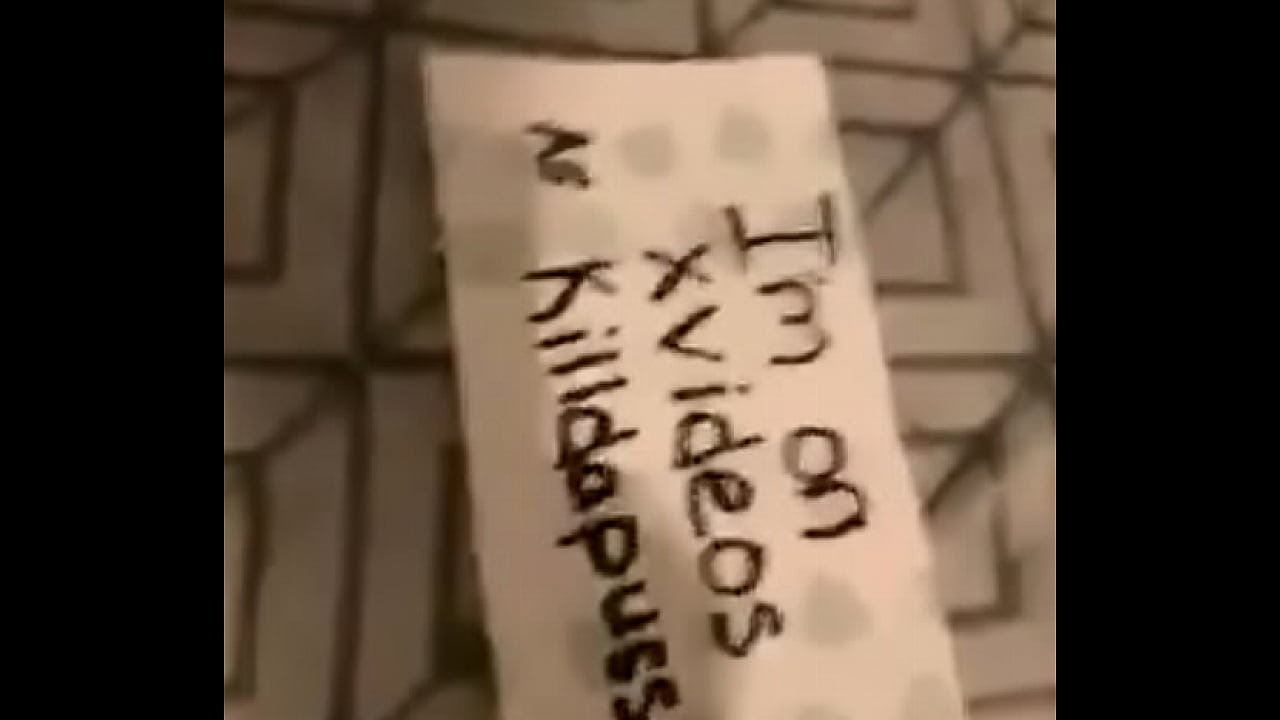 Im on
xvideos
Nr Killdapuss